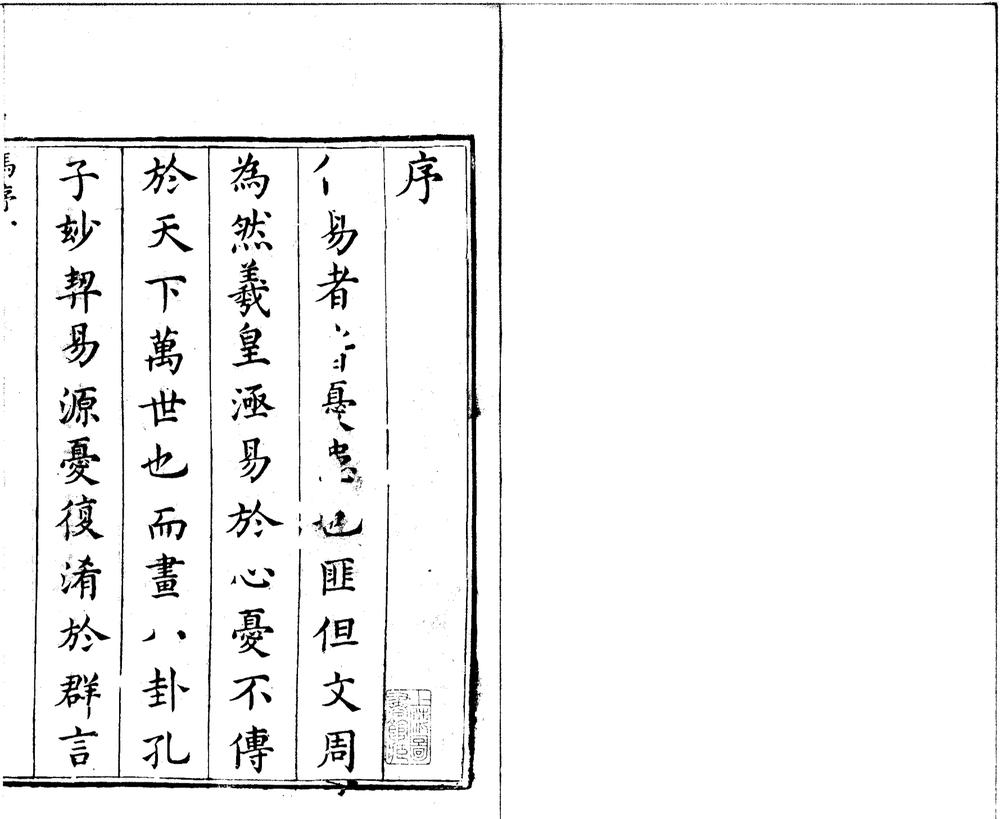 序
易者憂患也匪但文周
為然羲皇極易於心憂不傳
於天下萬世也而畫八卦孔
子玅契易源憂復淆於群言
馮序